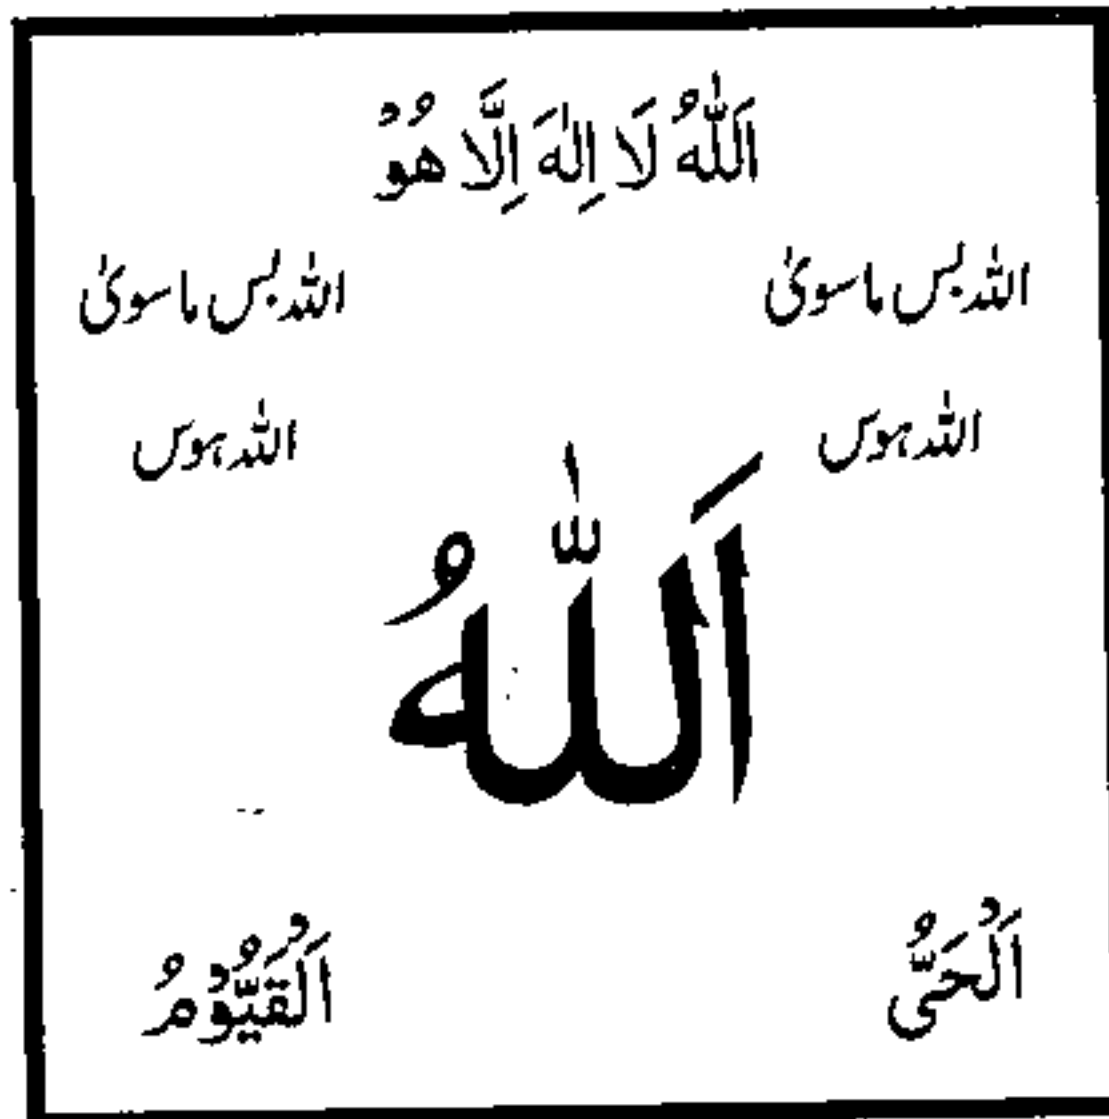 اَللّٰهُ لَا اِلٰهَ اِلَّا هُوْ
اللہ بس ماسویٰ
اللہ بس ماسویٰ
اللہ ہوس
اللہ ہوس
اَللّٰهُ
اَلْحَیُّ
اَلْقَیُّوْمُ